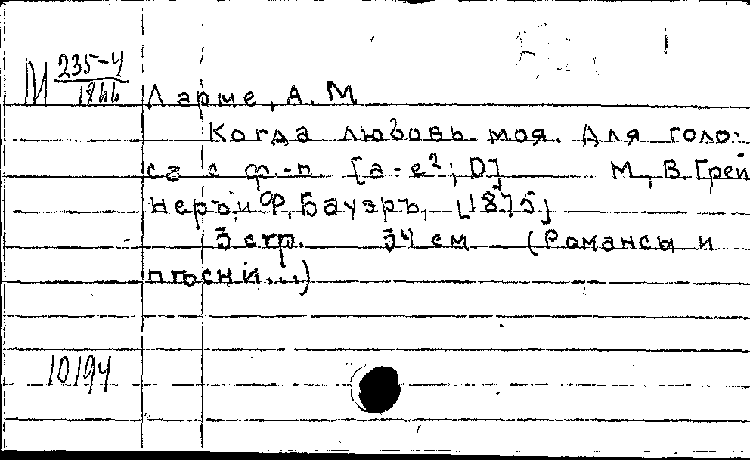 М 235-4
1866
Ларме, А. М
Когда любовь моя. Для голо-
са с ф.-п. [a-e²; D] М, В. Грей
неръ и Ф. Бауэръ, [1875]
3 стр. 34 см (Романсы и
пѣсни...)
10194